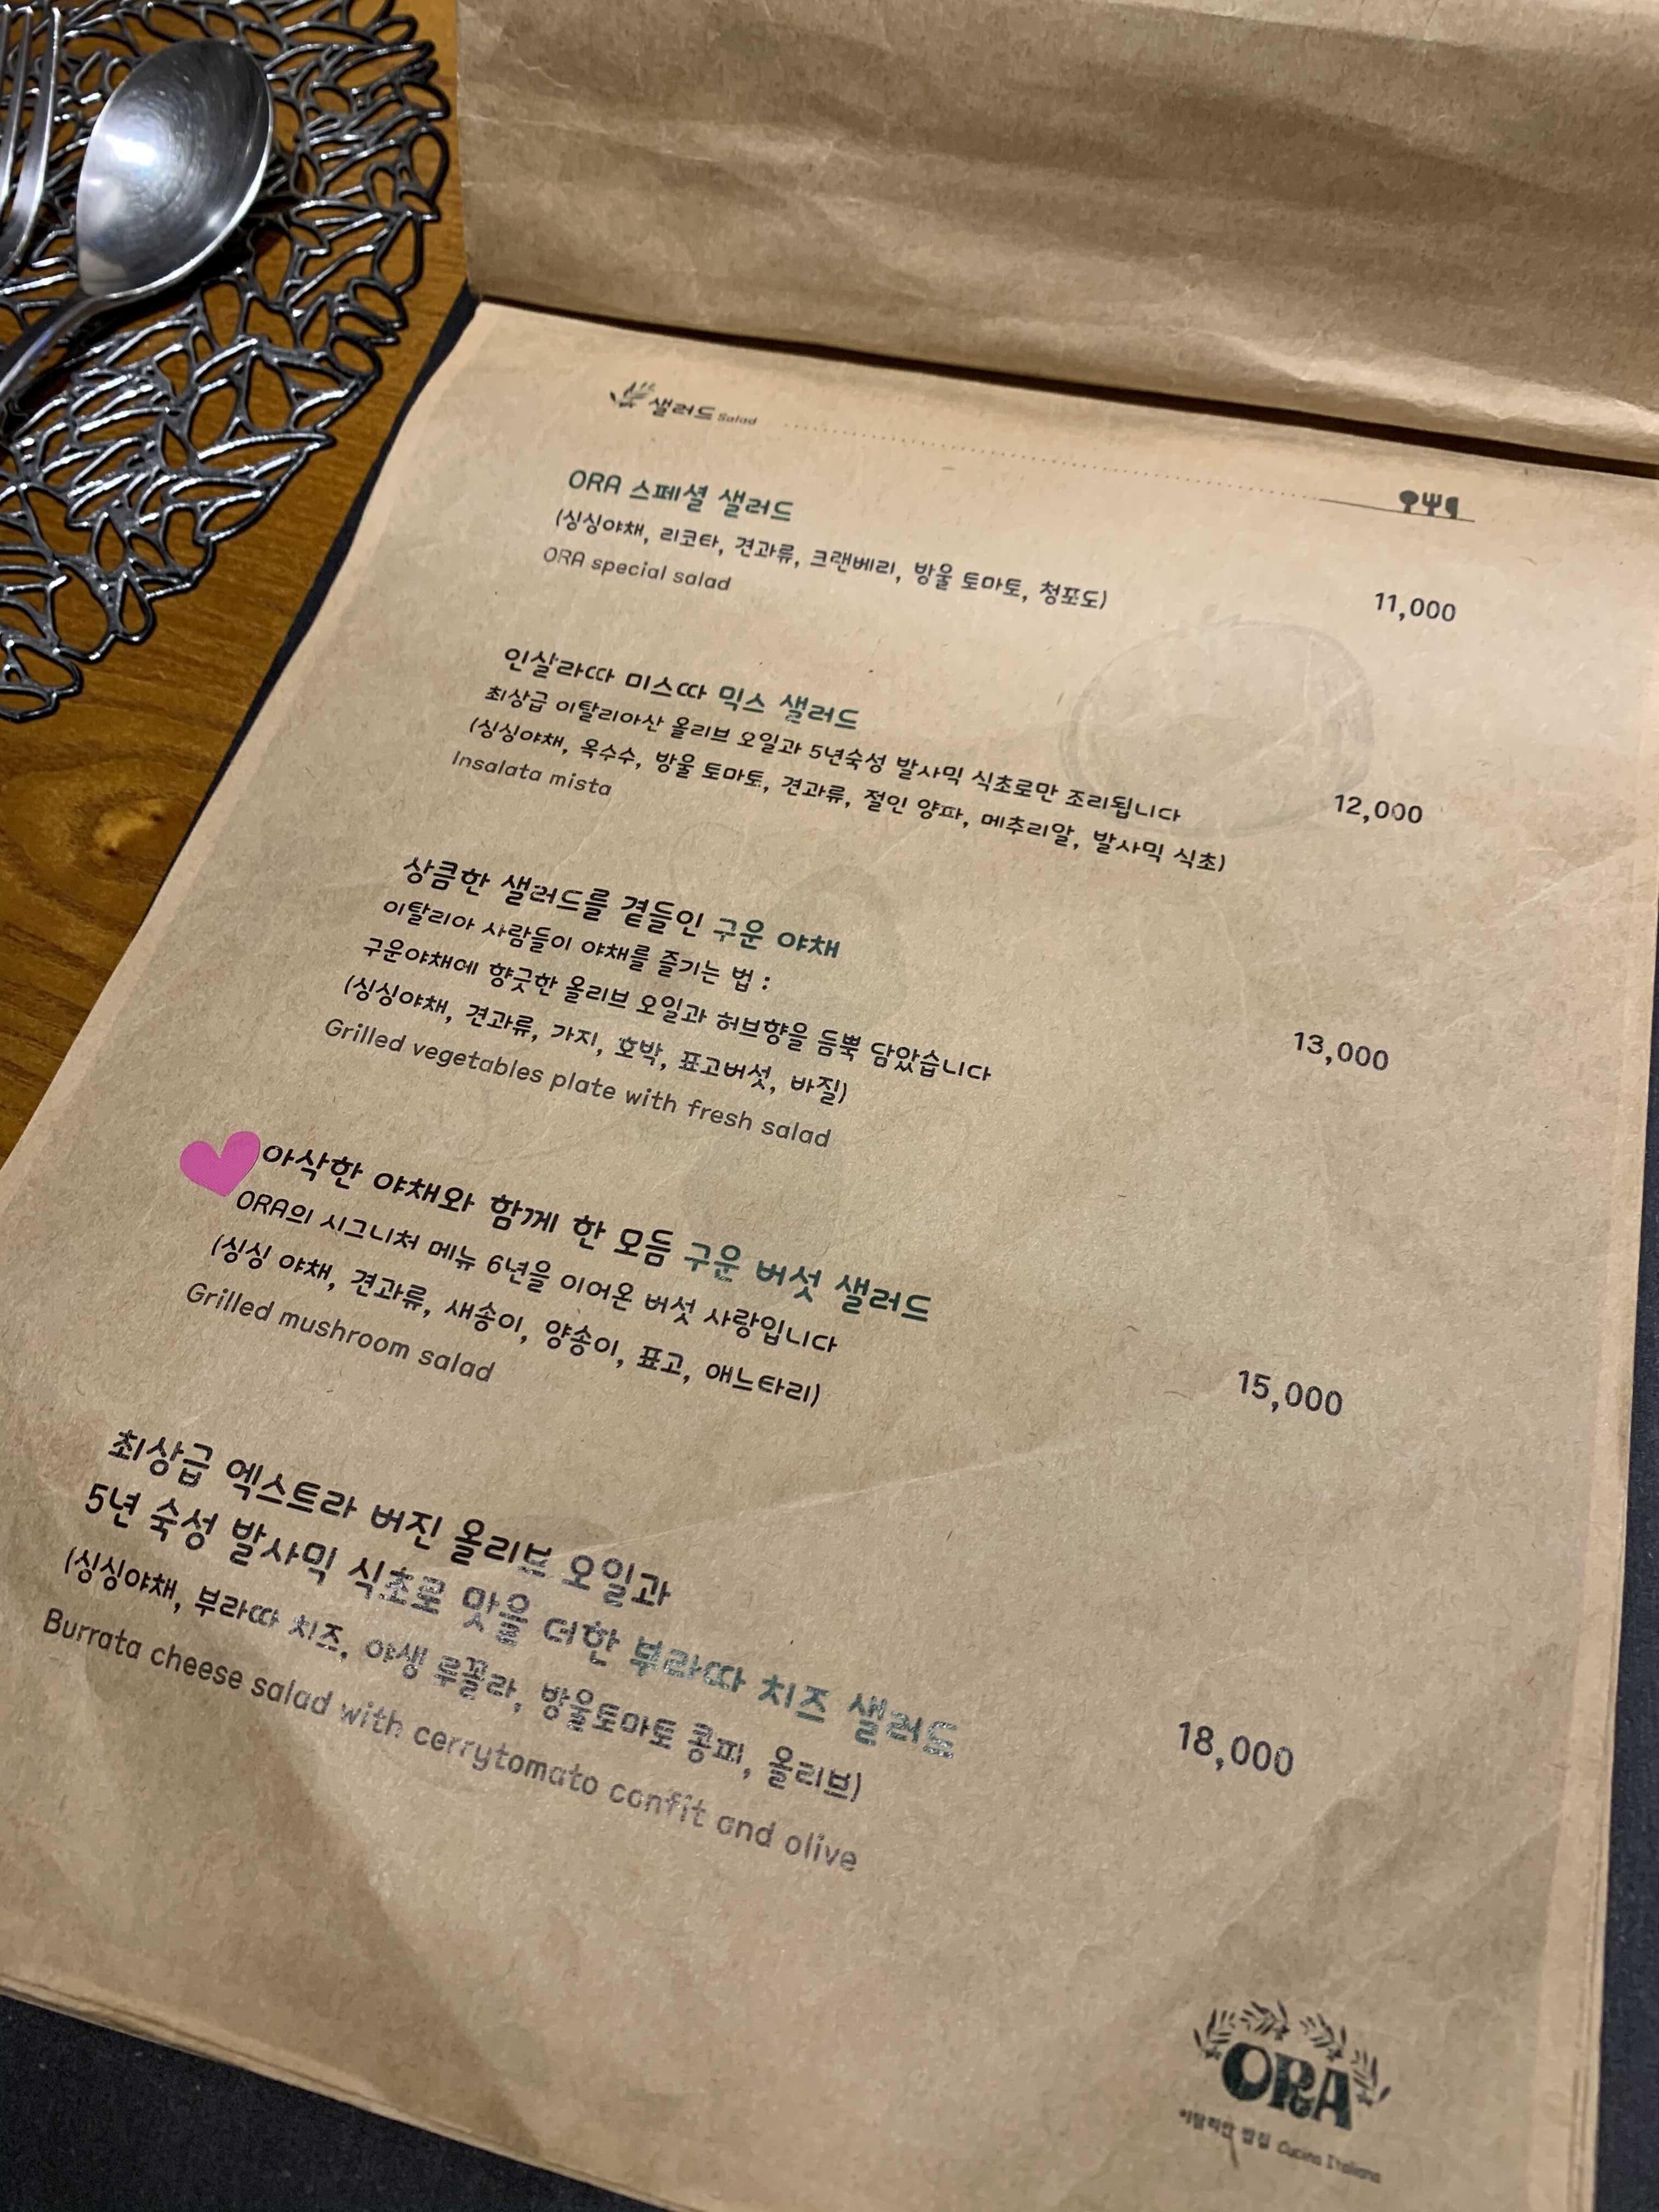 샐러드 Salad
ORA 스페셜 샐러드
(싱싱야채, 리코타, 견과류, 크랜베리, 방울 토마토, 청포도)
11,000
ORA special salad
인살라따 미스따 믹스 샐러드
최상급 이탈리아산 올리브 오일과 5년숙성 발사믹 식초로만 조리됩니다
12,000
(싱싱야채, 옥수수, 방울 토마토, 견과류, 절인 양파, 메추리알, 발사믹 식초)
Insalata mista
상큼한 샐러드를 곁들인 구운 야채
이탈리아 사람들이 야채를 즐기는 법 :
구운야채에 향긋한 올리브 오일과 허브향을 듬뿍 담았습니다
13,000
(싱싱야채, 견과류, 가지, 호박, 표고버섯, 바질)
Grilled vegetables plate with fresh salad
아삭한 야채와 함께 한 모듬 구운 버섯 샐러드
ORA의 시그니처 메뉴 6년을 이어온 버섯 사랑입니다
(싱싱 야채, 견과류, 새송이, 양송이, 표고, 애느타리)
15,000
Grilled mushroom salad
최상급 엑스트라 버진 올리브 오일과
5년 숙성 발사믹 식초로 맛을 더한 부라따 치즈 샐러드
18,000
(싱싱야채, 부라따 치즈, 야생 루꼴라, 방울토마토 콩피, 올리브)
Burrata cheese salad with cerrytomato confit and olive
ORA
이탈리안 밥집 Cucina Italiana